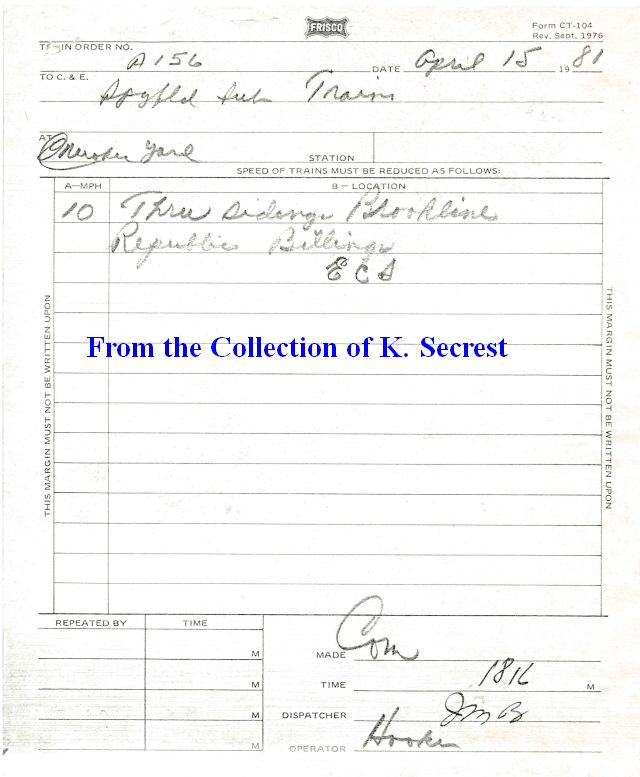 FRISCO
Form CT-104
Rev. Sept. 1976
IN ORDER NO. A 156
DATE April 15 1981
TO C. & E. Spgfld Sub Trains
AT Cherokee Yard STATION
SPEED OF TRAINS MUST BE REDUCED AS FOLLOWS:
A—MPH B—LOCATION
10 Three sidings Brookline
Republic Billings
E C S
THIS MARGIN MUST NOT BE WRITTEN UPON
THIS MARGIN MUST NOT BE WRITTEN UPON
From the Collection of K. Secrest
REPEATED BY TIME
M
M
M
M
MADE Com
TIME 1816 M
DISPATCHER JMB
OPERATOR Hooker